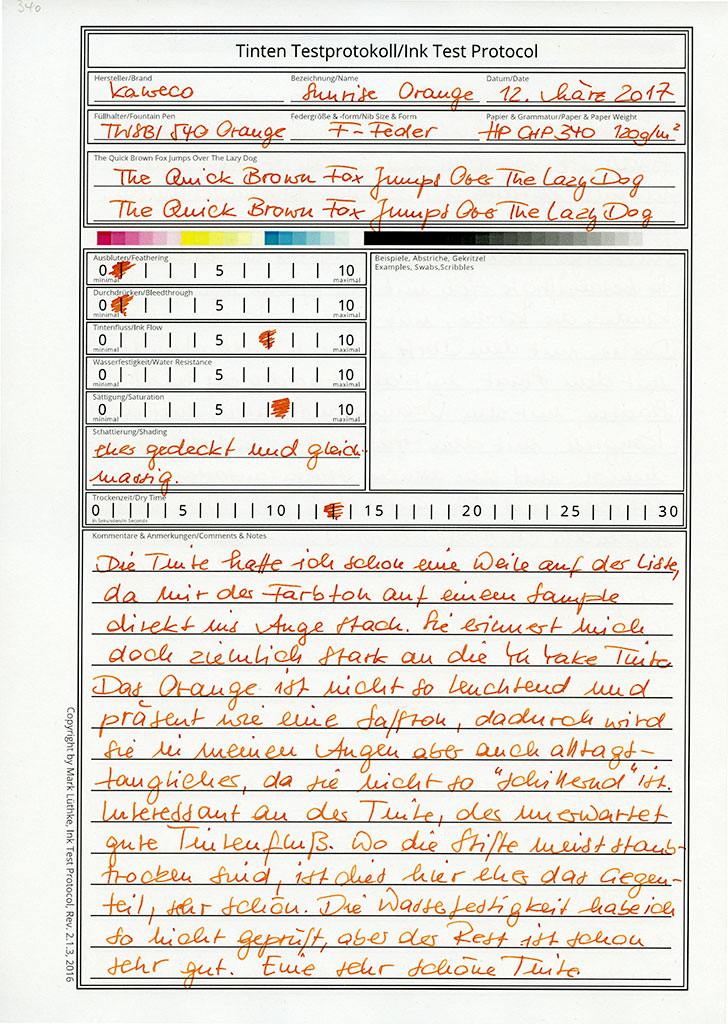 340
Tinten Testprotokoll/Ink Test Protocol
Hersteller/Brand Bezeichnung/Name Datum/Date
Kaweco Sunrise Orange 12. März 2017
Füllhalter/Fountain Pen Federgröße & -form/Nib Size & Form Papier & Grammatur/Paper & Paper Weight
TWSBI 540 Orange F-Feder HP CHP 340 120g/m²
The Quick Brown Fox Jumps Over The Lazy Dog
The Quick Brown Fox Jumps Over The Lazy Dog
The Quick Brown Fox Jumps Over The Lazy Dog
Ausbluten/Feathering
0 5 10
minimal maximal
Durchdrücken/Bleedthrough
0 5 10
minimal maximal
Tintenfluss/Ink Flow
0 5 10
minimal maximal
Wasserfestigkeit/Water Resistance
0 5 10
minimal maximal
Sättigung/Saturation
0 5 10
minimal maximal
Schattierung/Shading
eher gedeckt und gleich-
mässig.
Beispiele, Abstriche, Gekritzel
Examples, Swabs,Scribbles
Trockenzeit/Dry Time
0 5 10 15 20 25 30
in Sekunden/in Seconds
Kommentare & Anmerkungen/Comments & Notes
Die Tinte hatte ich schon eine Weile auf der Liste,
da mir der Farbton auf einem Sample
direkt ins Auge stach. Sie erinnert mich
doch ziemlich stark an die Yu Yake Tinte.
Das Orange ist nicht so leuchtend und
präsent wie eine Saffron, dadurch wird
sie in meinen Augen aber auch alltags-
tauglicher, da sie nicht so "schillernd" ist.
Interessant an der Tinte, der unerwartet
gute Tintenfluß. Wo die Stifte meist staub-
trocken sind, ist dies hier eher das Gegen-
teil, sehr schön. Die Wasserfestigkeit habe ich
so nicht geprüft, aber der Rest ist schon
sehr gut. Eine sehr schöne Tinte.
Copyright by Mark Lüthke, Ink Test Protocol, Rev. 2.1.3, 2016